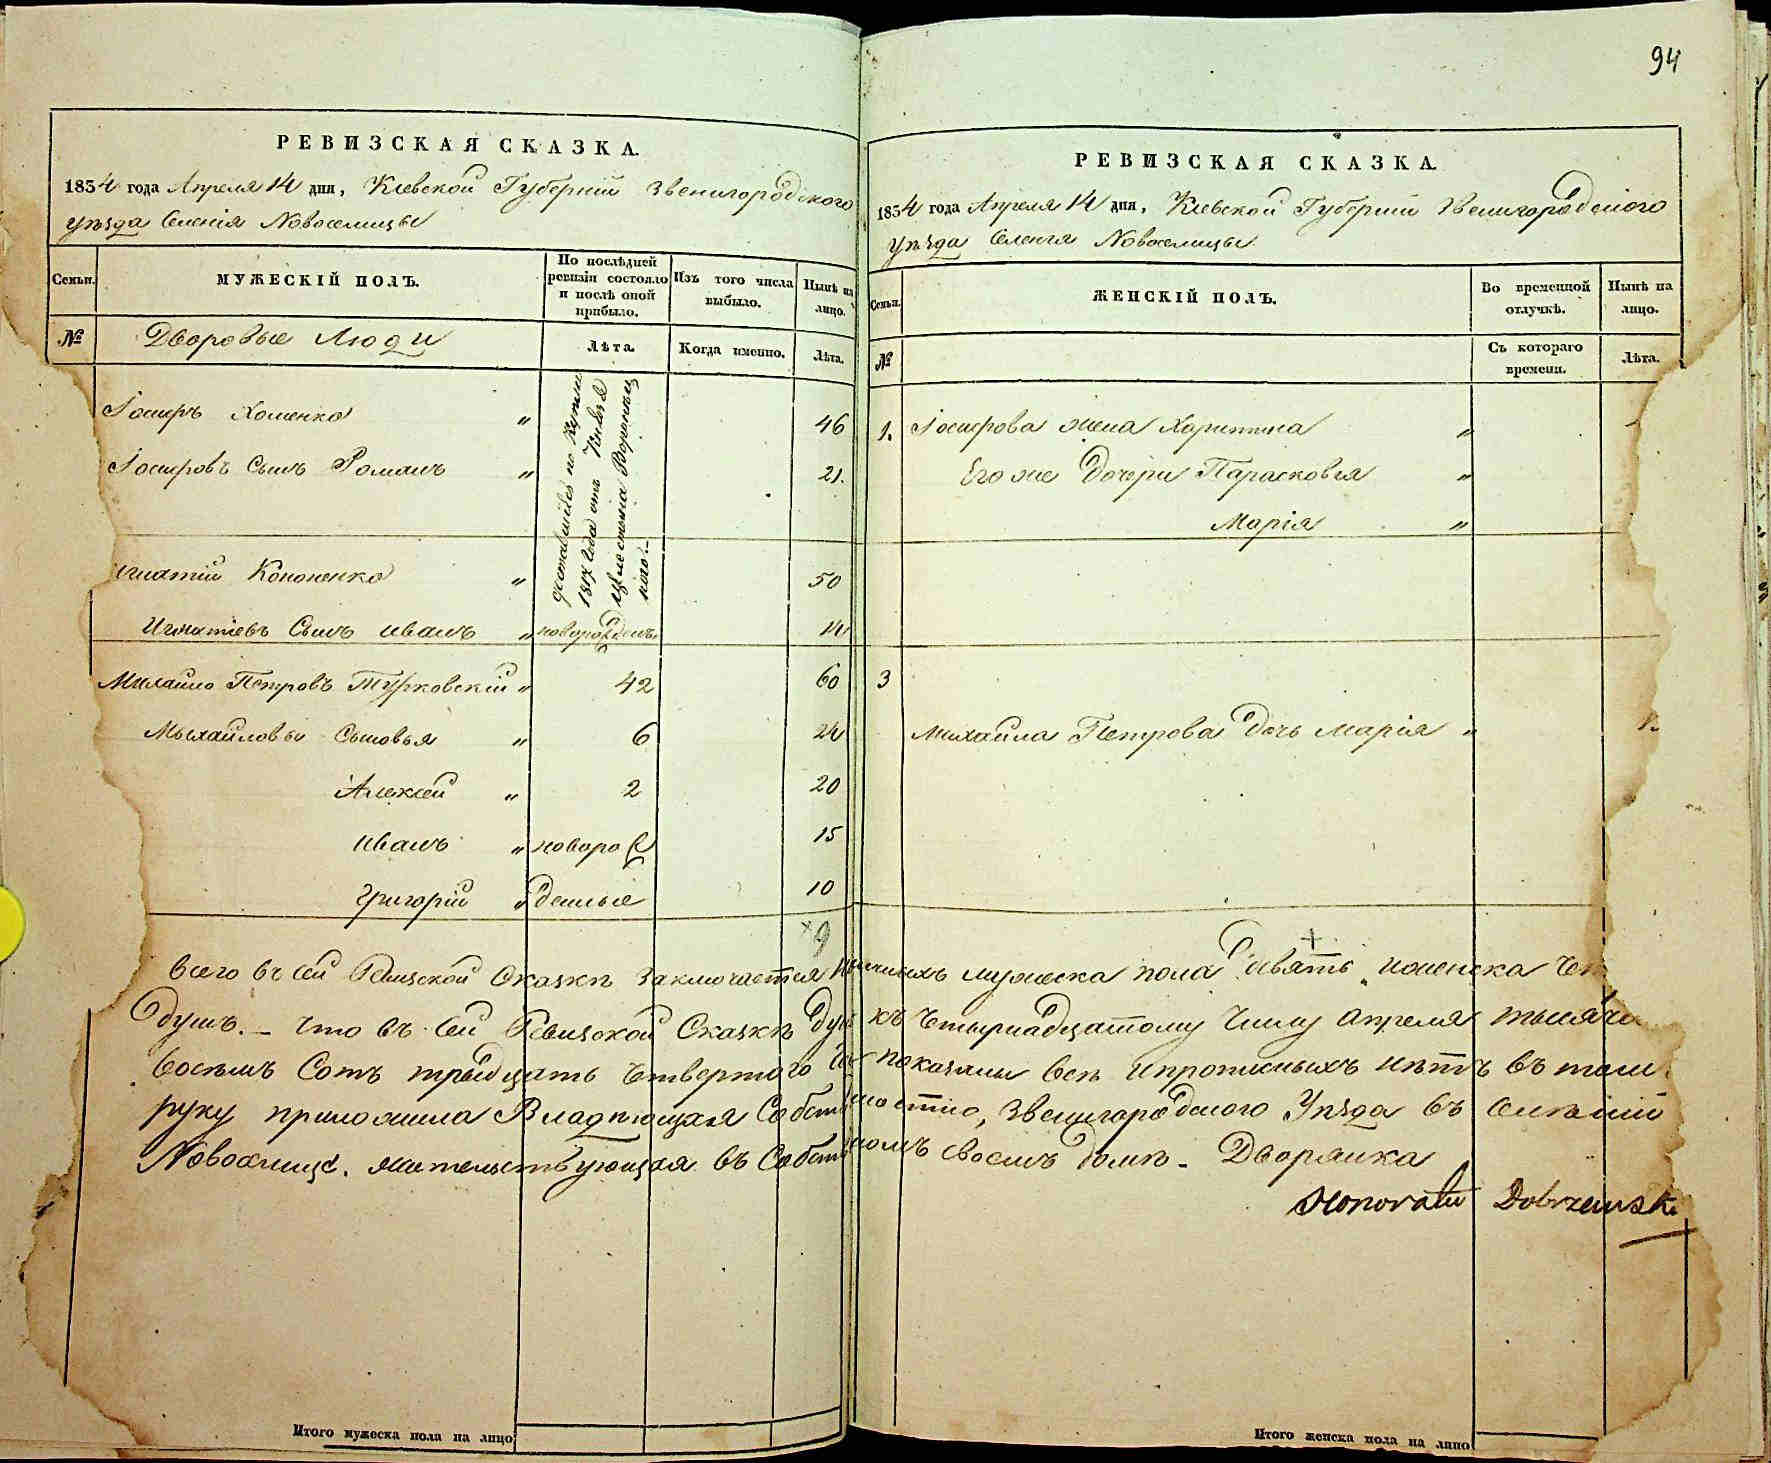 94
РЕВИЗСКАЯ СКАЗКА.
1834 года Апреля 14 дня, Кіевской Губерніи Звенигородского
уѣзда Селенія Новоселицы
Семьи.
МУЖЕСКІЙ ПОЛЪ.
По послѣдней ревизіи состояло и послѣ оной прибыло.
Изъ того числа выбыло.
Нынѣ на лицо.
№
Дворовые Люди
Лѣта.
Когда именно.
Лѣта.
Хоменко " 46
сынъ Романъ " 21.
доставшійся по купли
года отъ Князя
Воронец
кого.
Кононенко " 50
Игнатіевъ Сынъ иванъ " новорожденъ
Михайло Петровъ Турковскій " 42 60
Михайловы Сыновья " 6 24
Алексей " 2 20
иванъ " новорож 15
Григорій " денные 10
9
РЕВИЗСКАЯ СКАЗКА.
1834 года Апреля 14 дня, Кіевской Губерніи Звенигородского
уѣзда Селенія Новоселицы
Семьи.
ЖЕНСКІЙ ПОЛЪ.
Во временной отлучкѣ.
Нынѣ на лицо.
№
Съ котораго времени.
Лѣта.
1. жена Харитина "
Его же дочери Парасковія "
Марія "
3
Михайла Петрова дочь Марія "
Всего въ сей Ревизской Сказкѣ заключается мужеска пола девять, и женска
душъ. – Что въ сей Ревизской Сказкѣ къ Четырнадцатому Числу Апреля тысяча
восемъ Сотъ тридцать Четвертого показаны всѣ и прописныхъ нѣтъ въ томъ
руку приложила Владѣющая Звенигородского Уѣзда въ Селеніи
Новоселице. жительствующая въ своемъ домѣ – Дворянка
Honorata Dobrzańsk
Итого мужеска пола на лицо
Итого женска пола на лицо